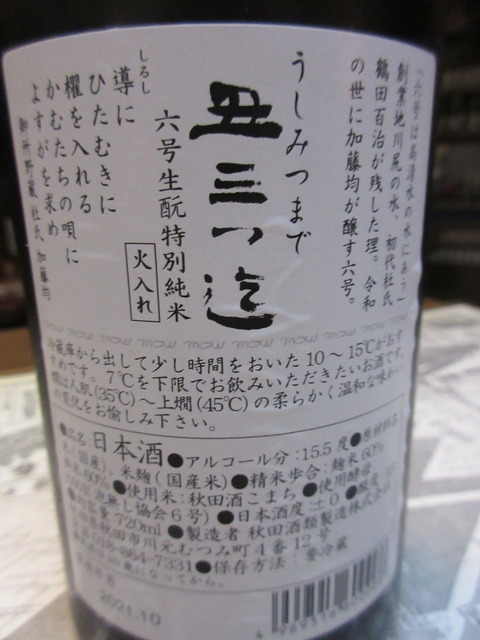 「六号は高清水の水にあう」
創業地川尻の水、初代杜氏
鶴田百治が残した理。令和
の世に加藤均が醸す六号。
うしみつまで
丑三つ迄
六号生酛特別純米
火入れ
しるし
導に
ひたむきに
櫂を入れる
かむたちの唄に
よすがを求め
御所野蔵 杜氏 加藤均
冷蔵庫から出して少し時間をおいた10～15℃がおす
すめです。7℃を下限でお飲みいただきたいお酒です。
燗は人肌(35℃)～上燗(45℃)の柔らかく温和な味わい
の変化をお愉しみ下さい。
●品名:日本酒●アルコール分:15.5度●原材料名:
米(国産)、米麹(国産米)●精米歩合:麹米60%
掛米60%●使用米:秋田酒こまち●使用酵母:
無し協会6号)●日本酒度:±0●酸度:
●内容量:720ml●製造者 秋田酒類製造株式会社
秋田県秋田市川元むつみ町4番12号
018-864-7331●保存方法:要冷蔵
になってから。
製造年月
2021.10